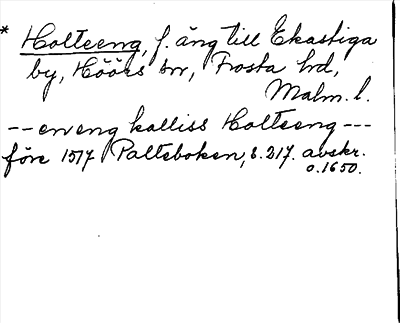 * Holteeng, f. äng till Ekastiga
by, Höörs sn, Frosta hrd,
Malm. l.
-- en eng kalliss Holteeng ---
före 1517 Palteboken, s. 217. avskr.
o. 1650.